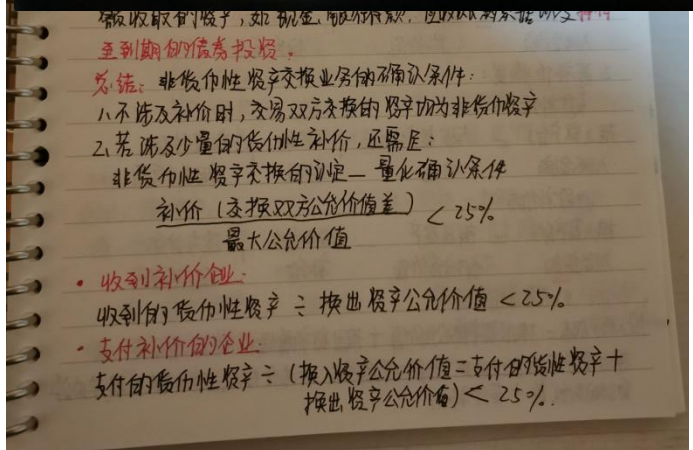 收取的资产,如现金、银行存款、应收账款和应收票据以及持有
至到期的债券投资。
总结:非货币性资产交换业务的确认条件:
1、不涉及补价时,交易双方交换的资产均为非货币资产
2、若涉及少量的货币性补价,还需足:
非货币性资产交换的认定—量化确认条件
补价(交换双方公允价值差)
最大公允价值
< 25%
• 收到补价企业:
收到的货币性资产 ÷ 换出资产公允价值 < 25%
• 支付补价的企业:
支付的货币性资产 ÷ (换入资产公允价值 = 支付的货性资产 +
换出资产公允价值) < 25%.